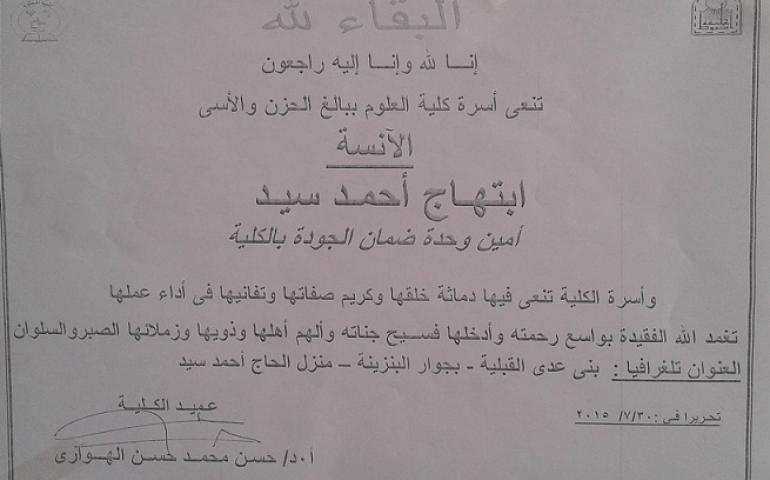 البقاء لله
إنا لله وإنا إليه راجعون
تنعى أسرة كلية العلوم ببالغ الحزن والأسى
الآنسة
ابتهاج أحمد سيد
أمين وحدة ضمان الجودة بالكلية
وأسرة الكلية تنعى فيها دماثة خلقها وكريم صفاتها وتفانيها فى أداء عملها
تغمد الله الفقيدة بواسع رحمته وأدخلها فسيح جناته وألهم أهلها وذويها وزملائها الصبر والسلوان
العنوان تلغرافيا : بنى عدى القبلية - بجوار البنزينة – منزل الحاج أحمد سيد
عميد الكلية
تحريرا فى :٢٠١٥/٧/٣٠
أ.د/ حسن محمد حسن الهوارى